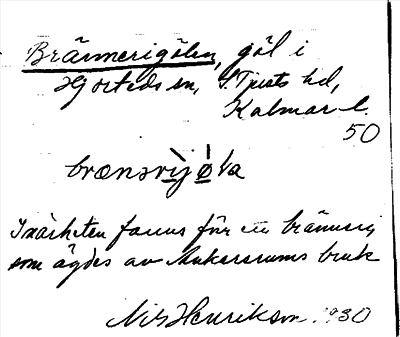 Brännerigölen, göl i
Hjorteds sn, S. Tjusts hd,
Kalmar l.
50
I närheten fanns för en bränneri
som ägdes av Ankarsrums bruk
Nils Henrikson 1930